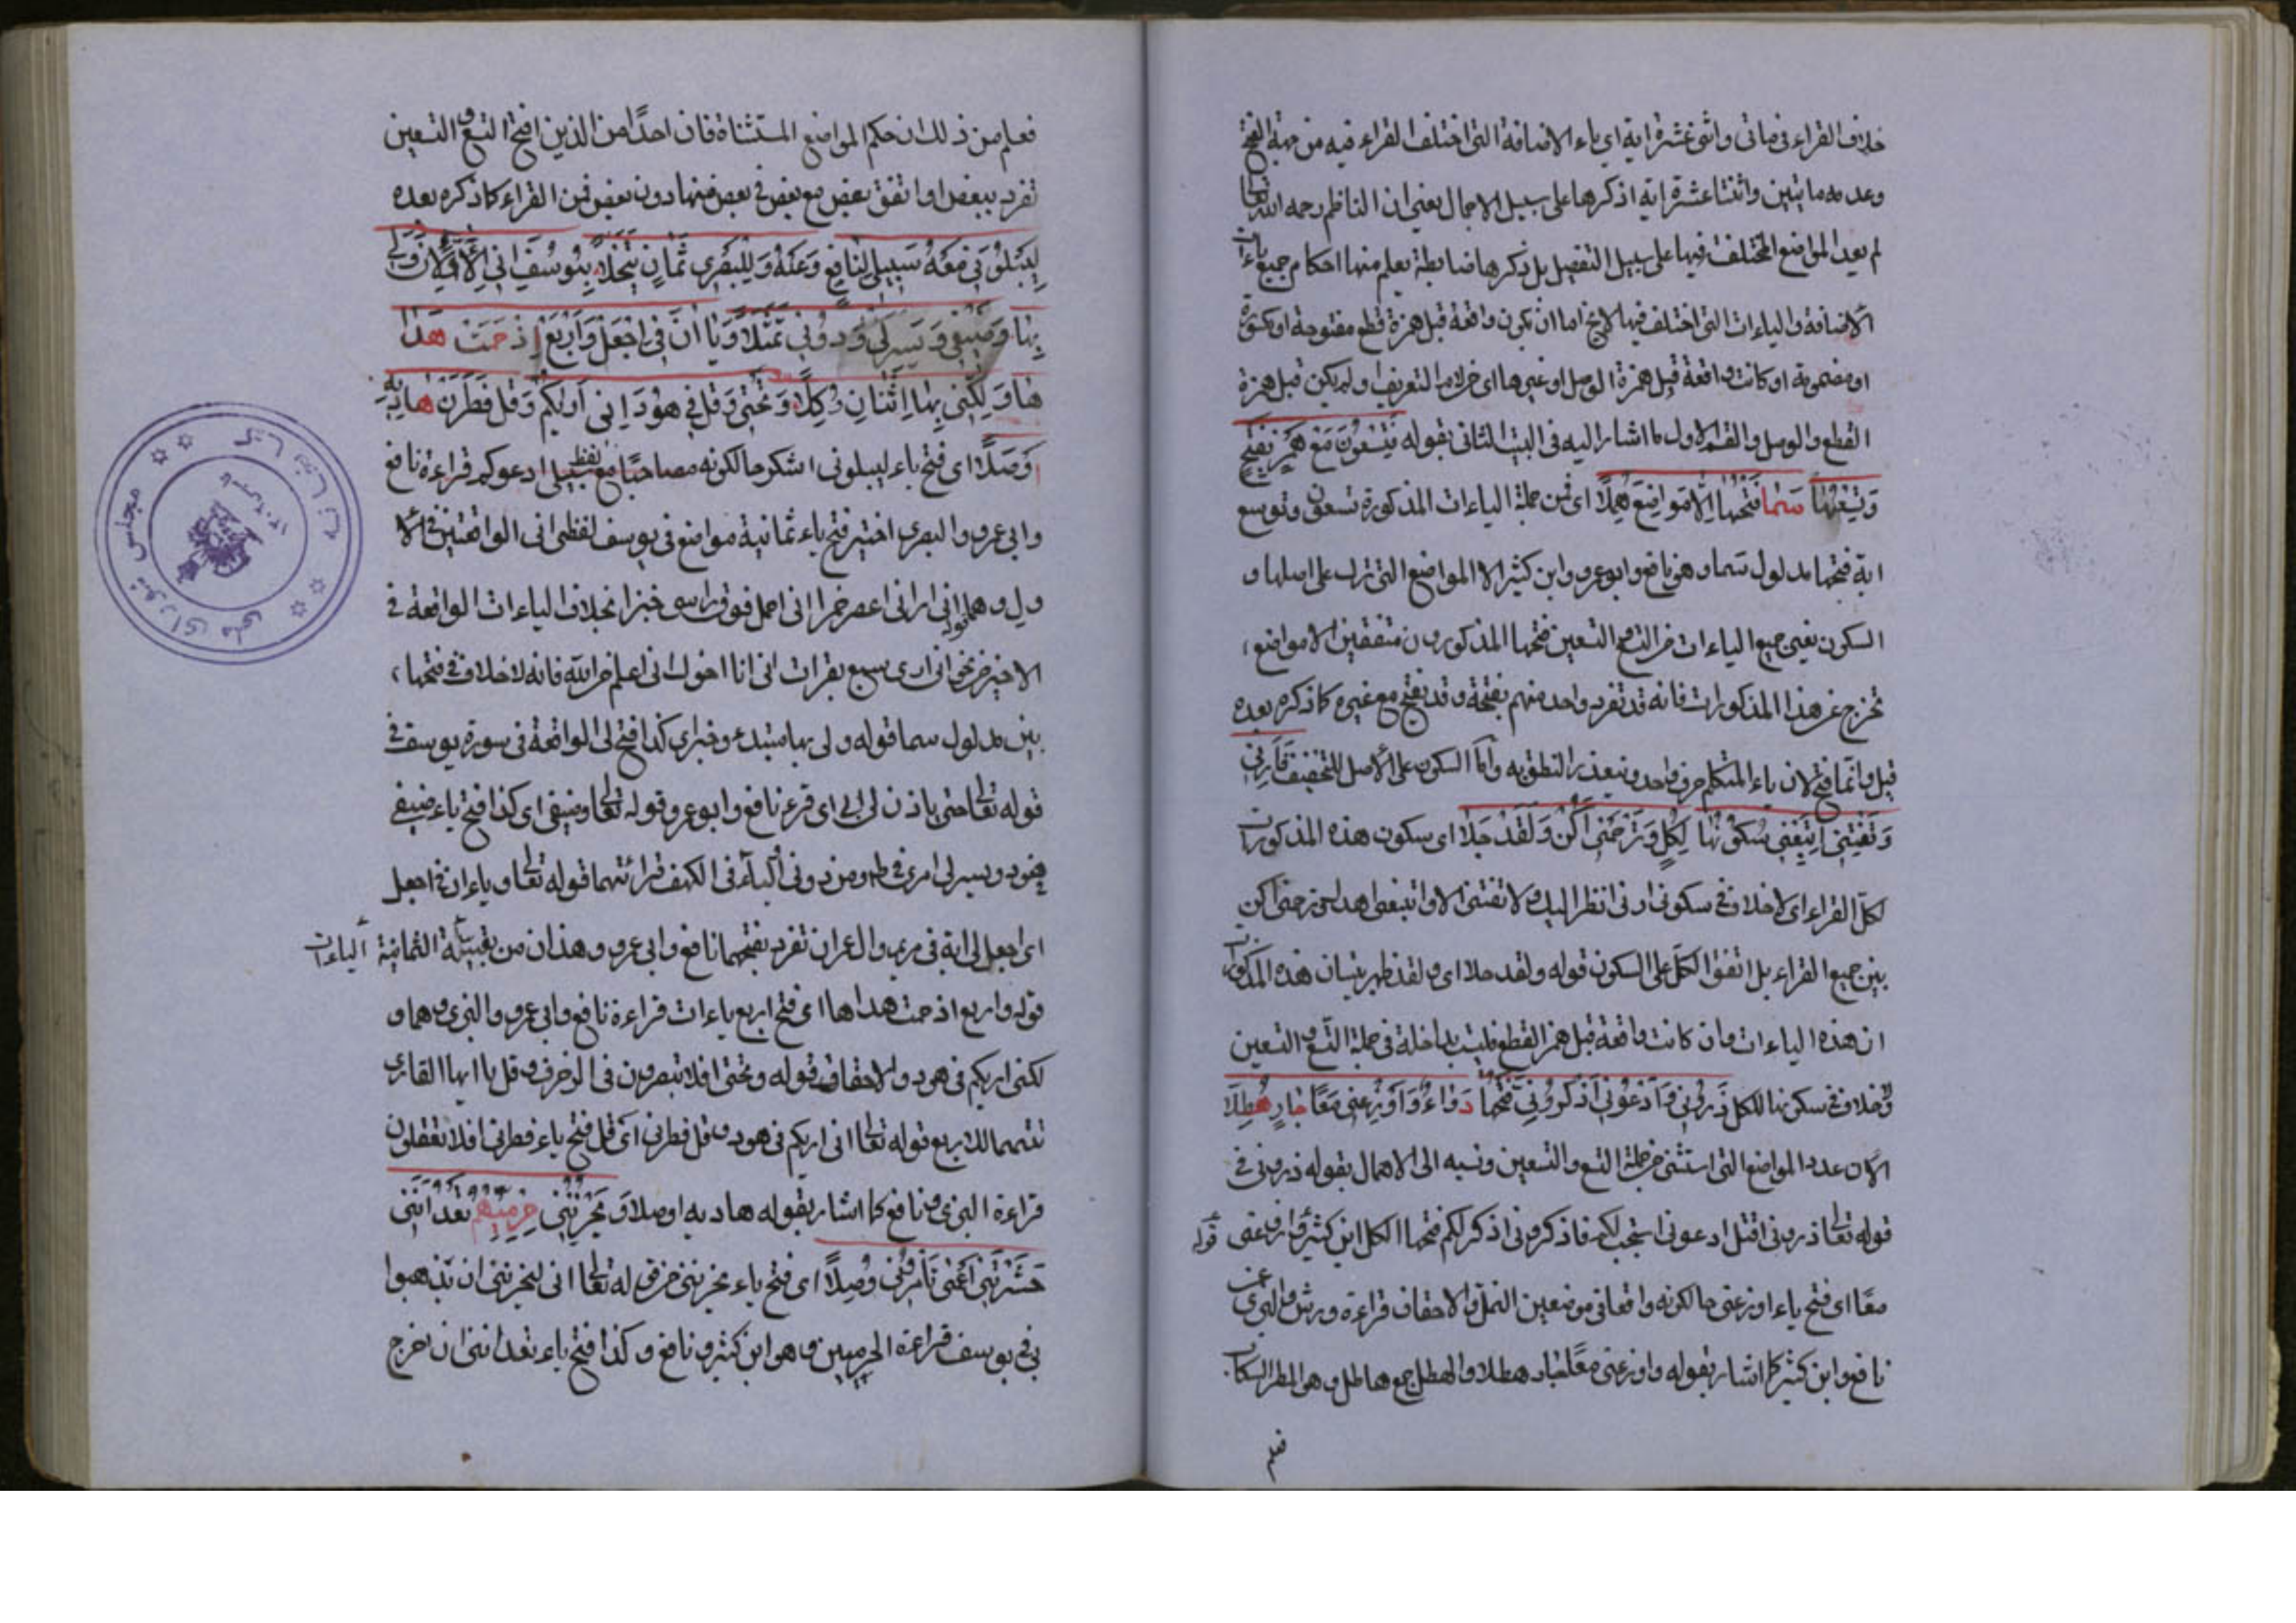 خلاف القراء فى مأتى واثنى عشرة اية اى ياء الاضافة التى اختلف القراء فيه من جهة الفتح
وعدمه مايتين واثنتا عشرة اية اذكرها على سبيل الاجمال يعنى ان الناظم رحمه الله تعالى
لم يعد المواضع المختلف فيها على سبيل التفصيل بل ذكرها ضابطة يعلم منها احكام جميع ياءات
الاضافة والياءات التى اختلف فيها لا يخ اما ان يكون واقعة قبل همزة قطع مفتوحة او مكسورة
او مضمومة او كانت واقعة قبل همزة الوصل او غيرها اى خر لام التعريف او لم يكن قبل همزة
القطع والوصل والقسم الاول ما اشار اليه فى البيت الثانى بقوله فَتِسْعُونَ مَعْ هَمْزٍ بِفَتْحٍ
وَتِسْعُهَا سَمَا فَتْحُهَا إِلَّا مَوَاضِعَ هُمَّلَا اى فمن جملة الياءات المذكورة تسعون وتسع
اية فتحها مدلول سما وهو نافع وابو عمرو وابن كثير الا المواضع التى ترك على اصلها و
السكون يعنى جميع الياءات من التسع والتسعين فتحها المذكورون متفقين الا مواضع
تخرج عن هذا المذكورات فانه قد تفرد واحد منهم بفتحة وقد يفتح مع غيره كما ذكره بعده
قبل وانما فتح لان ياء المتكلم حرف واحد فيتعذر النطق به واما السكون على الاصل للتخفيف فَأَرْنِي
وَتَفْتِنِّي اتَّبِعْنِي سُكُونُهَا لِكُلٍّ وَتَرْحَمْنِي أَكُنْ وَلَقَدْ جَلَا اى سكون هذه المذكورات
لكل القراء اى لا خلاف فى سكون ارنى انظر اليك ولا تفتنى الا واتبعنى اهدك وترحمنى اكن
بين جميع القراء بل اتفقوا الكل على السكون قوله ولقد جلا اى ولقد ظهر بتبيان هذه المذكورات
ان هذه الياءات وان كانت واقعة قبل همز القطع فليست بداخلة فى جملة التسع والتسعين
ولا خلاف فى سكونها للكل ذَرُونِي وَادْعُونِي اذْكُرُونِي فَتْحُهَا دَوَاءٌ وَأَوْزِعْنِي مَعًا جَادَ هُطَّلَا
الآن عدد المواضع التى استثنى من جملة التسع والتسعين ونسبه الى الاهمال بقوله ذرونى فى
قوله تعالى ذرونى اقتل ادعونى استجب لكم فاذكرونى اذكركم فتحها الكل ابن كثير وأوزعنى قوله
معًا اى فتح ياء اوزعنى حالكونه واقعا فى موضعين النمل والاحقاف قراءة ورش والبزى عن
نافع وابن كثير كما اشار بقوله واوزعنى معًا جاد هطلا والهطل جمع هاطل وهو المطر السكاب
فعلم
فعلم من ذلك ان حكم المواضع المستثناة فان احدًا من الذين افتح التسع والتسعين
تفرد ببعض او اتفق بعض مع بعض فى بعض منها دون بعض من القراء كما ذكره بعده
لِيَبْلُوَنِي مَعْهُ سَبِيلِي لِنَافِعٍ وَعَنْهُ وَلِلْبَصْرِي ثَمَانٍ تُنُخِّلَا بِيُوسُفَ إِنِّي الْأَوَّلَانِ وَلِي
بِهَا وَضَيْفِي وَيَسِّرْ لِي وَدُونِي تَمَثَّلَا وَيَاءَانِ فِي اجْعَلْ وَأَرْبَعٌ إِذْ حَمَتْ هُدَا
هَا وَلَكِنِّي بِهَا اثْنَانِ وُكِّلَا وَتَحْتِي وَقُلْ فِي هُودَ إِنِّي أَرَاكُمْ وَقُلْ فَطَرَنْ هَادِيهِ
أَوْصَلَا اى فتح ياء ليبلونى اشكر حالكونه مصاحبًا مع لفظ سبيلى ادعو كم قراءة نافع
وابى عمرو والبصرى اختير فتح ياء ثمانية مواضع فى يوسف لفظى انى الواقعتين فى الا
ول وهما قوله انى ارانى اعصر خمرا انى احمل فوق راسى خبزا بخلاف الياءات الواقعة فى
الاخير من نحو انى ارى سبع بقرات انى انا اخوك انى اعلم من الله فانه لا خلاف فى فتحها
بين مدلول سما قوله ولى بها مبتدء وخبر اى كذا فتح لى الواقعة فى سورة يوسف فى
قوله تعالى حتى ياذن لى ابى اى قرء نافع وابو عمرو قوله تعالى وضيفى اى كذا فتح ياء ضيفى
فى هود ويسر لى امرى فى طه ومن دونى أولياء فى الكهف قرائتهما قوله تعالى وياءان فى اجعل
اى اجعل لى اية فى مريم وال عمران تفرد بفتحهما نافع وابى عمرو وهذان من بقيته الثمانية الياءات
قوله واربع اذ حمت هداها اى فتح اربع ياءات قراءة نافع وابى عمرو والبزى وهما و
لكنى اريكم فى هود والاحقاف وقوله وتحتى افلا تبصرون فى الزخرف وقل يا ايها القارى
تتمها الاربع قوله تعالى انى اريكم فى هود وقل فطرنى اى قل فتح ياء فطرنى افلا تعقلون
قراءة البزى ونافع كما اشار بقوله هاديه اوصلا وَيَحْزُنُنِي حِرْمِيُّهُمْ تَعِدَانِنِي
حَشَرْتَنِي أَعْمَى تَأْمُرُونِي وُصِّلَا اى فتح ياء يحزننى من قوله تعالى انى ليحزننى ان تذهبوا
به فى يوسف قراءة الحرميين وهو ابن كثير ونافع وكذا فتح ياء تعداننى ان اخرج